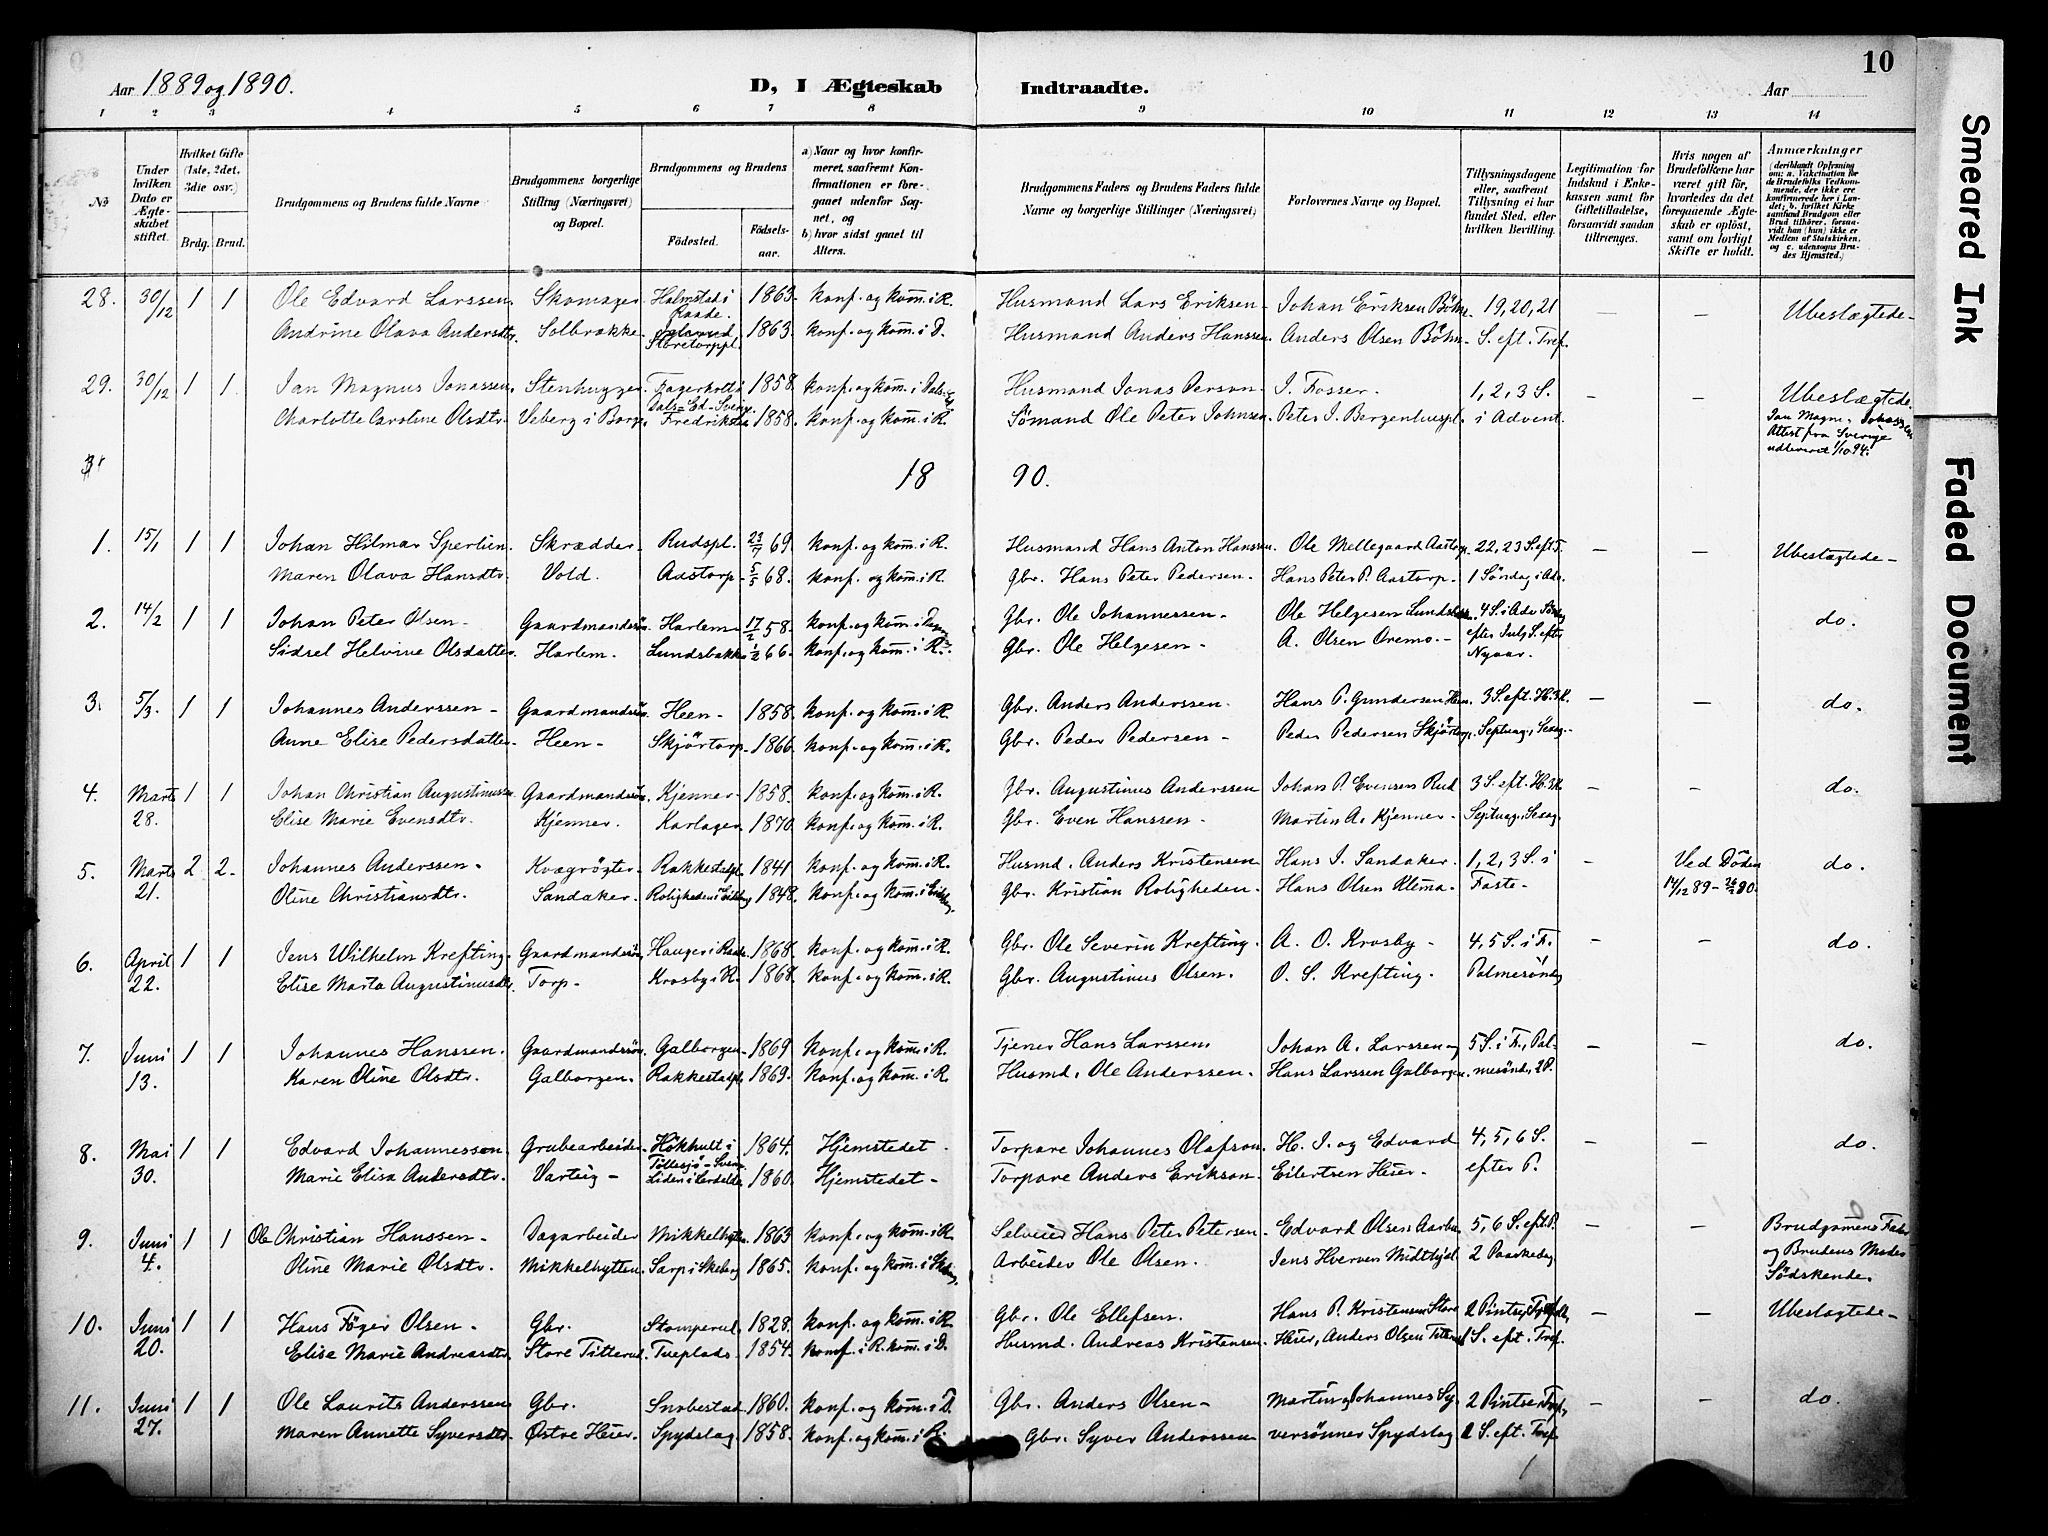 10
Aar 1889 og 1890.
D, I Ægteskab Indtraadte.
Aar
1 2 3 4 5 6 7 8 9 10 11 12 13 14
No
Under hvilken Dato er Ægteskabet stiftet.
Hvilket Gifte (1ste, 2det, 3die osv.)
Brdg. Brud.
Brudgommens og Brudens fulde Navne
Brudgommens borgerlige Stilling (Næringsvei) og Bopæl.
Brudgommens og Brudens
Fødested.
Fødselsaar.
a) Naar og hvor konfirmeret, saafremt Konfirmationen er foregaaet udenfor Sognet, og
b) hvor sidst gaaet til Alters.
Brudgommens Faders og Brudens Faders fulde Navne og borgerlige Stillinger (Næringsvei)
Forlovernes Navne og Bopæl.
Tillysningsdagene eller, saafremt Tillysning ei har fundet Sted, efter hvilken Bevilling.
Legitimation for Indskud i Enkekassen samt for Giftetilladelse, forsaavidt saadan tiltrænges.
Hvis nogen af Brudefolkene har været gift før, hvorledes da det foregaaende Ægteskab er opløst, samt om lovligt Skifte er holdt.
Anmærkninger
(deriblandt Oplysning om: a. Vakcination for de Brudefolks Vedkommende, der ikke ere konfirmerede her i Landet; b. hvilket Kirkesamfund Brudgom eller Brud tilhører, forsaavidt han (hun) ikke er Medlem af Statskirken, og c. udensogns Brudes Hjemsted.)
28. 30/12 1 1 Ole Edvard Larssen. Skomager Halmstad i Raade. 1863. konf. og kom. i R. Husmand Lars Eriksen - Johan Eriksen Böhn. 19, 20, 21 — — Ubeslægtede -
Andrine Olava Andersdtr. Solbrække. Storetorppl. 1863. konf. og kom. i D. Husmand Anders Hanssen. Anders Olsen Böhn. S. eft. Tref.
29. 30/12 1 1 Jan Magnus Jonassen. Stenhugger. Dals-Ed-Sverig. 1858. konf. og kom. i Dals-Ed. Husmand Jonas Person. I. Fosser. 1, 2, 3 S. — — Ubeslægtede.
Charlotte Caroline Olsdtr. Veberg i Borge. Fredrikstad 1858. konf. og kom. i R. Sömand Ole Peter Johnsen. Peter I. Borgenhuspl. i Advent. Jan Magn. Johassen
Attest fra Sverige
udleveret 1/10 94.
18 90.
1. 15/1 1 1 Johan Hilmar Sperlin. Skrædder. Rudspl. 23/7 69. konf. og kom. i R. Husmand Hans Anton Hanssen. Ole Mellegaard Aastorp. 22, 23 S. eft T. — — Ubeslagtede -
Maren Olava Hansdtr. Vold. Aastorp 5/5 68. konf. og kom. i R. Gbr. Hans Peter Pedersen - Hans Peter P. Aastorp. 1 Söndag i Adv.
2. 14/2 1 1 Johan Peter Olsen - Gaardmandssön. Harlem 17/2 58. konf. og kom. i Gbr. Ole Johannessen - Ole Helgesen 4 S. i Adv Sönd. do.
Sidsel Helvine Olsdatter. Harlem. Lundsbakke 1/2 66. konf. og kom. i R. Gbr. Ole Helgesen - A. Olsen Oremo. - efter Jul, S. eft. Nyaar.
3. 5/3. 1 1 Johannes Anderssen - Gaardmandssön. Heen - 1858. konf. og kom. i R. Gbr. Anders Anderssen. Hans P. Gundersen Heen. 3 S. eft. H. 3 K. — — do.
Anne Elise Pedersdatter. Heen - Skjörtorp. 1866. konf. og kom. i R. Gbr. Peder Pedersen - Peder Pedersen Skjörtorp. Septuag., Sexag.
4. Marts 28. 1 1 Johan Christian Augustinussen Gaardmandssön. Kjenner. 1858. konf. og kom. i R. Gbr. Augustinus Anderssen Johan P. Evensen Rud 3 S. eft. H. 3 K. — — do.
Elise Marie Evensdtr. Kjenner. Karlager 1870. konf. og kom. i R. Gbr. Even Hanssen - Martin A. Kjenner - Septuag., Sexag.
5. Marts 21. 2 2. Johannes Anderssen - Kvægrögter. Rakkestadpl. 1841 konf. og kom. i R. Husmd. Anders Kristensen Hans I. Sandaker. 1, 2, 3 S. i — Ved Döden do.
Oline Christiansdtr. Sandaker. Roligheden i Eidsberg 1848. konf. og kom. i Eidsberg. Gbr. Kristian Roligheden. Hans Olsen Klema. Faste - 14/12 89 - 26/2 80.
6. April 22. 1 1 Jens Wilhelm Krefting. Gaardmandssön. Hauger i Raade. 1868. konf. og kom. i R. Gbr. Ole Severin Krefting. A. O. Krosby - 4, 5 S. i F. — — do.
Elise Marta Augustinusdtr. Torp - Krosby i R. 1868. konf. og kom. i R. Gbr. Augustinus Olsen. O. S. Krefting. Palmesöndag
7. Juni 13. 1 1 Johannes Hanssen. Gaardmandssön. Galborgen 1869 Konf. og kom. i R. Tjener Hans Larssen. Johan A. Larssen og 5 S. i F., Pal- — — do.
Karen Oline Olsdtr. Galborgen. Rakkestadpl. 1869. Konf. og kom. i R. Husmd. Ole Anderssen. Hans Larssen Galborgen. mesönd., 2 P.
8. Mai 30. 1 1 Edvard Johannessen. Grubearbeider. Hökhult i Tillesjö - Sverig 1864. Hjemstedet. Torpare Johannes Olafson. H. I. og Edvard 4, 5, 6 S. — — do.
Marie Elisa Andersdtr. Varteig - Liden i 1860. Hjemstedet - Torpare Anders Erikson. Eilertsen Heier. efter P.
9. Juni 4. 1 1 Ole Christian Hanssen - Dagarbeider Mikkelhytten. 1863 konf. og kom. i R. Selveier Hans Peter Petersen - Edvard Olsen 5, 6 S. eft. P. — — Brudgomens Fader
Oline Marie Olsdtr. Mikkelhytten. Sarp i Skeberg 1865. konf. og kom. i Skeberg. Arbeider Ole Olsen. Jens Hverven Midtbyd. 2 Paaskedag og Brudens Moder
Södskende.
10. Juni 20. 1 1 Hans Föger Olsen - Gbr. Stomperud. 1828. konf. og kom. i R. Gbr. Ole Ellefsen. Hans P. Kristensen Store 2 Pintsed. — — Ubeslagtede -
Elise Marie Andreasdtr. Store Titterud. Tueplads. 1854. konf. i R. kom. i D. Husmd. Andreas Kristensen. Heier, Anders Olsen 1 S. eft. Tref.
11. Juni 27. 1 1 Ole Laurits Anderssen Gbr. Snobestad 1860. konf. og kom. i D. Gbr. Anders Olsen - Martin og Johannes Sy- 2 Pintsed. — — do.
Maren Annette Syversdtr. Østre Heier. Spydslag. 1858. konf. og kom. i R. Gbr. Syver Anderssen versönner Spydslag 2 S. eft. Tref.
Smeared Ink
Faded Document